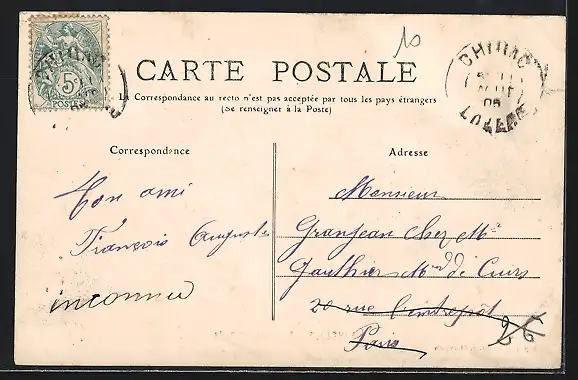 10
CARTE POSTALE
La Correspondance au recto n'est pas acceptée par tous les pays étrangers
(Se renseigner à la Poste)
5
POSTES
CHIRAC
LOZERE
Correspondance
Ton ami
François Auguste
inconnu
Adresse
Monsieur
Granjean Chez Mr
Gauthier Md de Cuirs
20 rue l'entrepôt
Paris